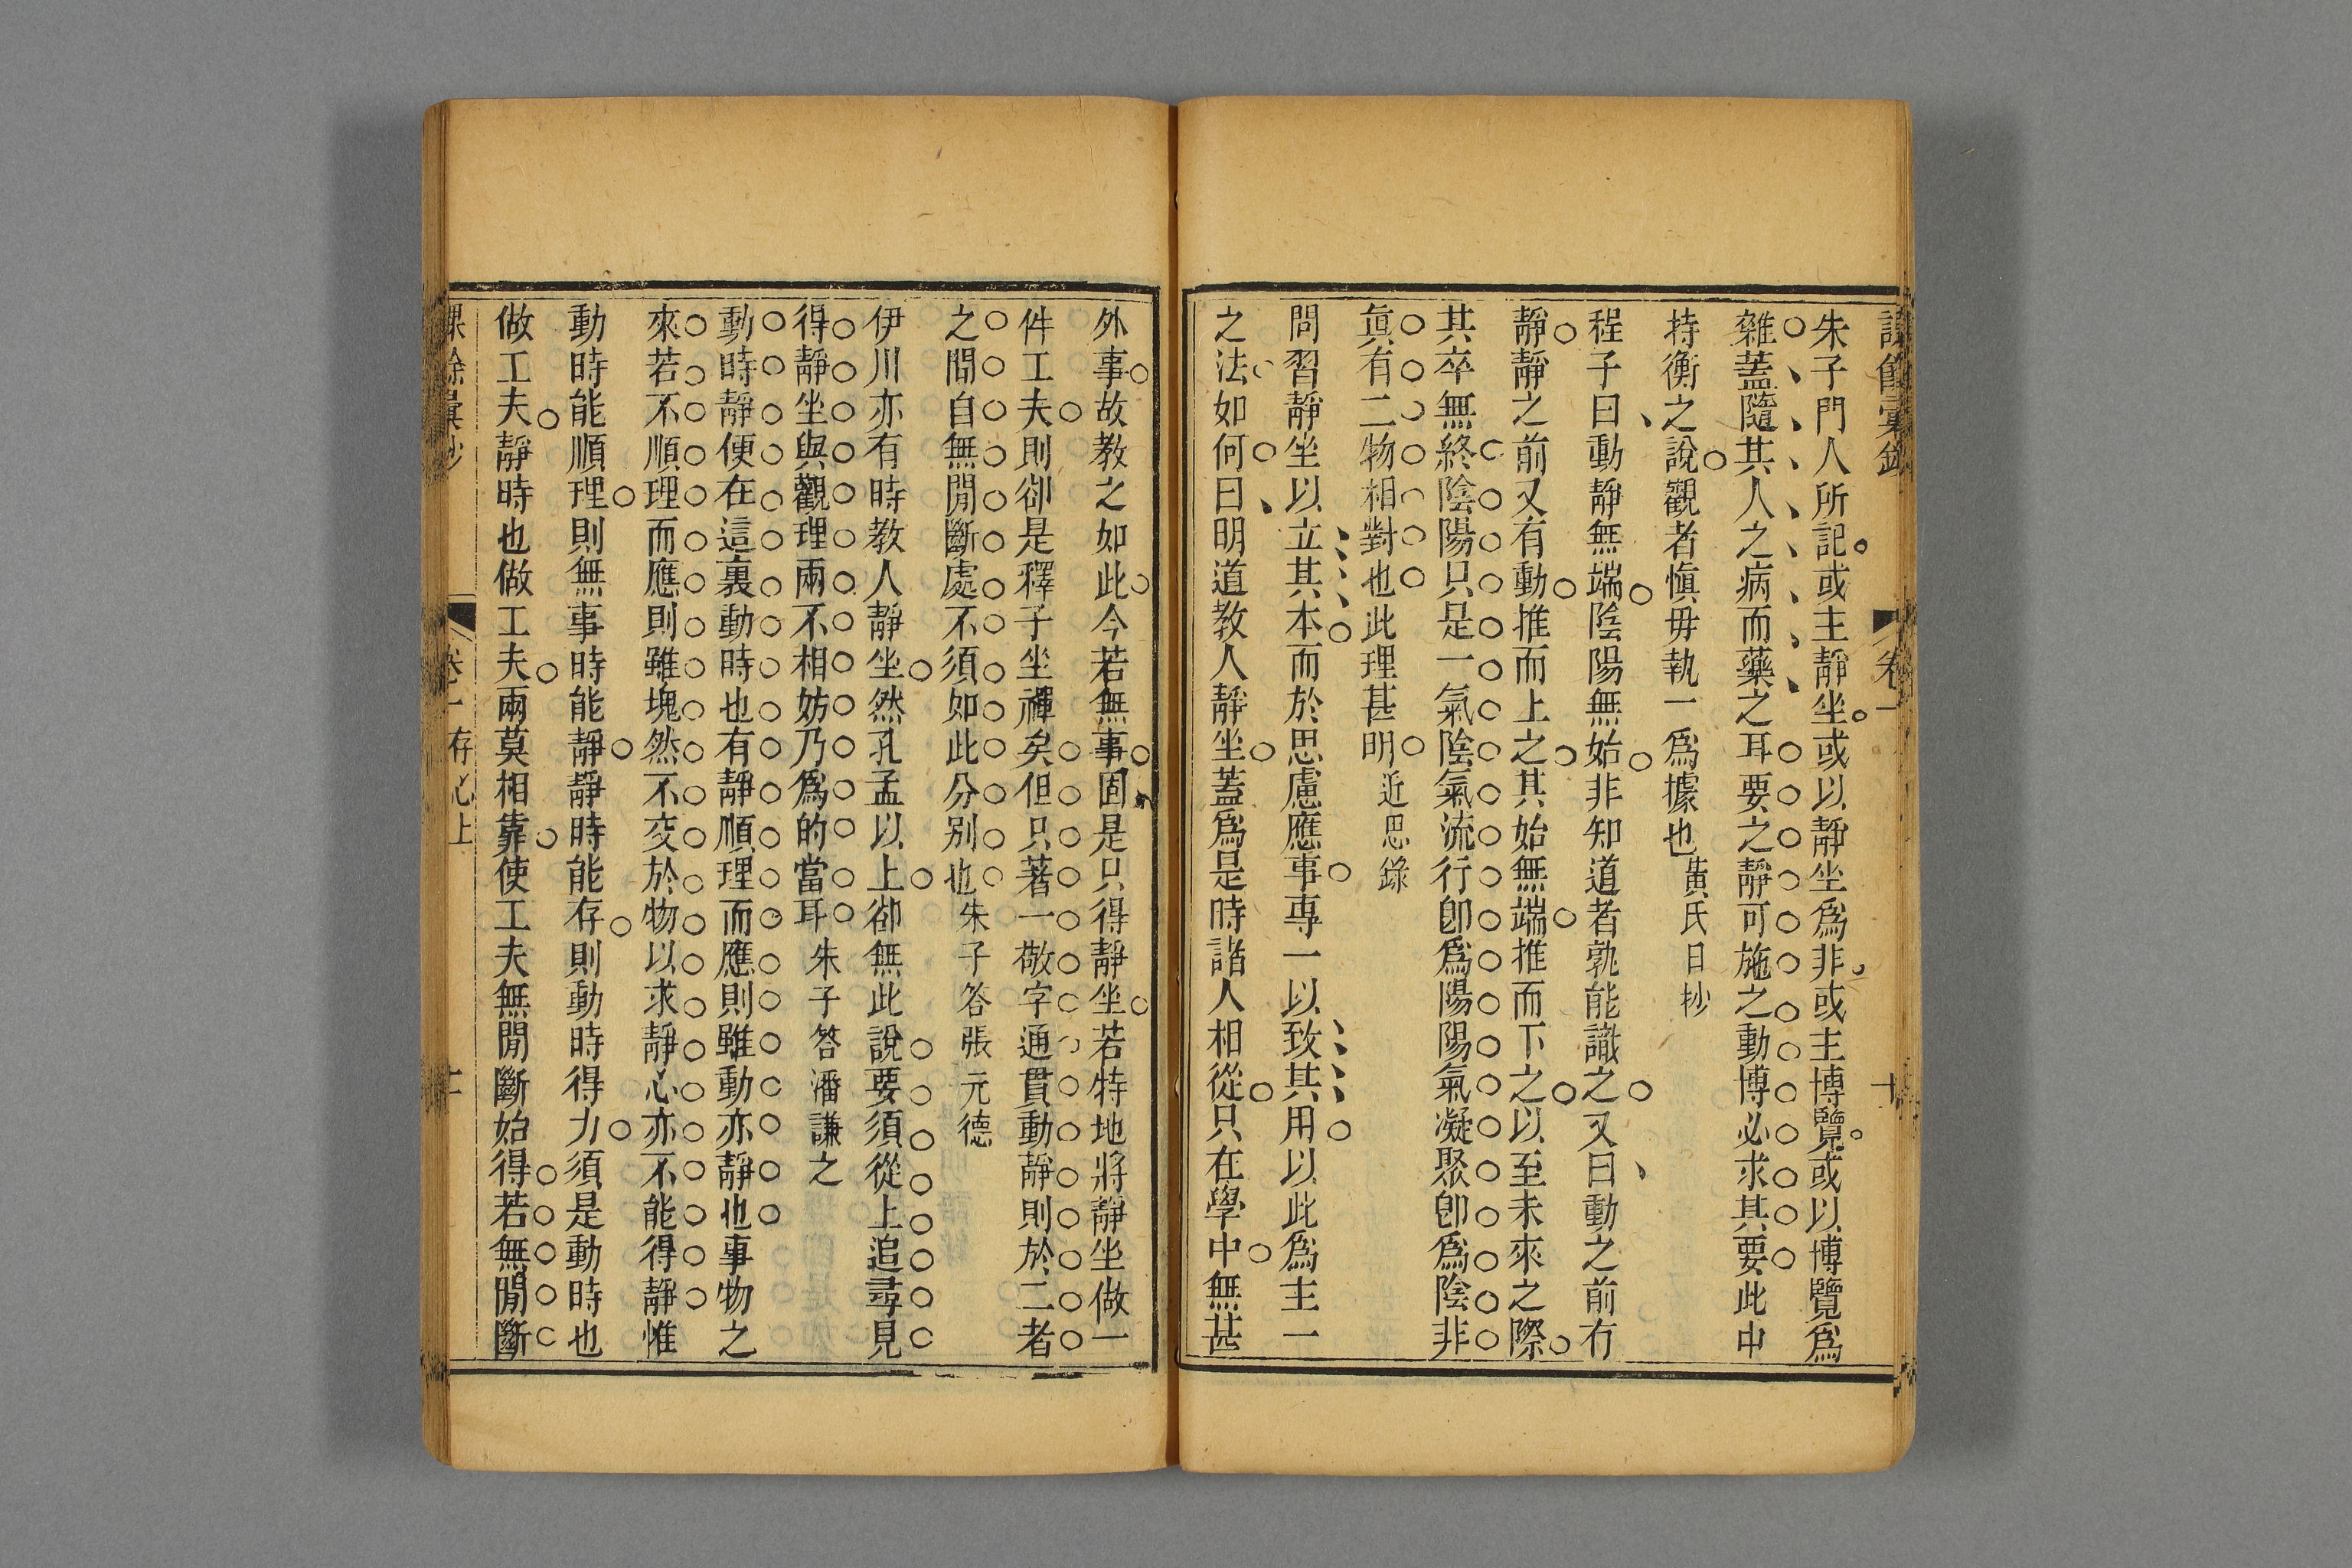 朱子門人所記或主靜坐或以靜坐爲非或主博覽或以博覽爲
雜蓋隨其人之病而藥之耳要之靜可施之動博必求其要此中
持衡之說觀者愼毋執一爲據也黃氏日抄
程子曰動靜無端陰陽無始非知道者孰能識之又曰動之前有
靜靜之前又有動推而上之其始無端推而下之以至未來之際
其卒無終陰陽只是一氣陰氣流行卽爲陽陽氣凝聚卽爲陰非
眞有二物相對也此理甚明近思錄
問習靜坐以立其本而於思慮應事專一以致其用以此爲主一
之法如何曰明道教人靜坐蓋爲是時諸人相從只在學中無甚
外事故教之如此今若無事固是只得靜坐若特地將靜坐做一
件工夫則卻是釋子坐禪矣但只著一敬字通貫動靜則於二者
之間自無間斷處不須如此分别也朱子答張元德
伊川亦有時教人靜坐然孔孟以上卻無此說要須從上追尋見
得靜坐與觀理兩不相妨乃爲的當耳朱子答潘謙之
動時靜便在這裏動時也有靜順理而應則雖動亦靜也事物之
來若不順理而應則雖塊然不交於物以求靜心亦不能得靜惟
動時能順理則無事時能靜靜時能存則動時得力須是動時也
做工夫靜時也做工夫兩莫相靠使工夫無間斷始得若無間斷
卷一 存心上